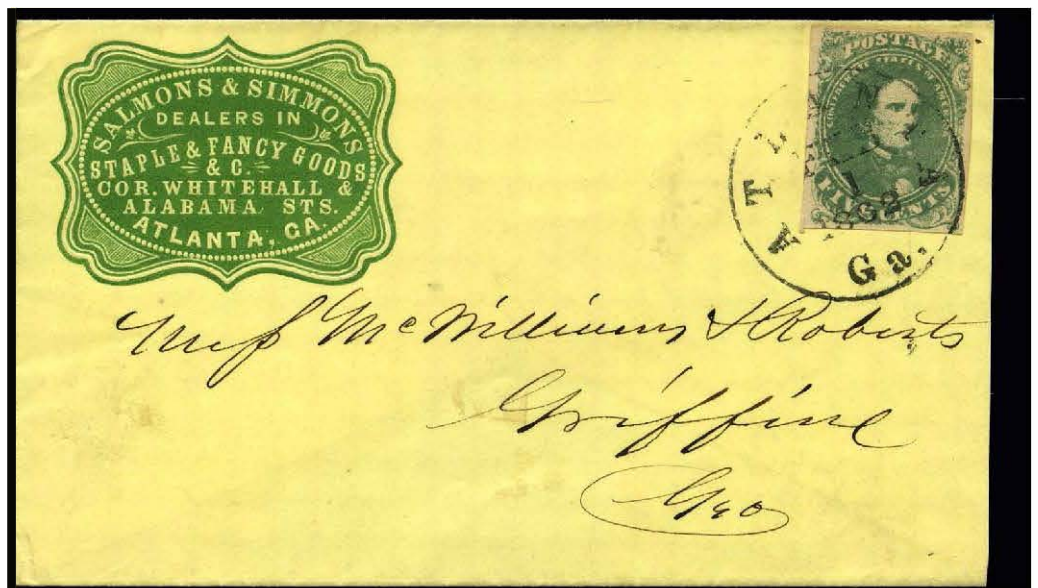 SALMONS & SIMMONS
DEALERS IN
STAPLE & FANCY GOODS
& C.
COR. WHITEHALL &
ALABAMA STS.
ATLANTA, GA.
POSTAGE
CONFEDERATE STATES OF AMERICA
FIVE CENTS
ATLAN
1
1862
Ga.
Mess McWilliams & Roberts
Griffine
Geo